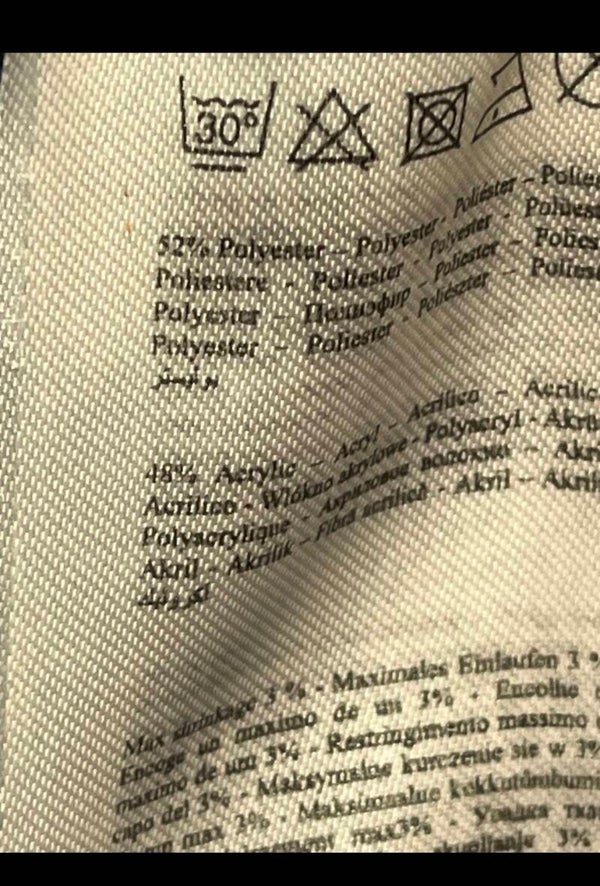 30°
52% Polyester – Polyester - Poliéster –
Poliestere - Poliester - Polyester -
Polyester – Полиэфир – Poliester –
Polyester – Poliester - Poliészter –
48% Acrylic – Acryl – Acrilico –
Acrilico - Włókno akrylowe - Polyacryl -
Polyacrylique - Акриловое волокно –
Akril - Akrilik – Fibră acrilică - Akril –
Max shrinkage 3 % - Maximales Einlaufen 3 %
Encoge un maximo de un 3% - Encolhe
maximo de um 3% - Restringimento massimo
capo del 3% - Maksymalne kurczenie sie w 3%
max 3% - Maksimaalne
max3% - Усадка
3%